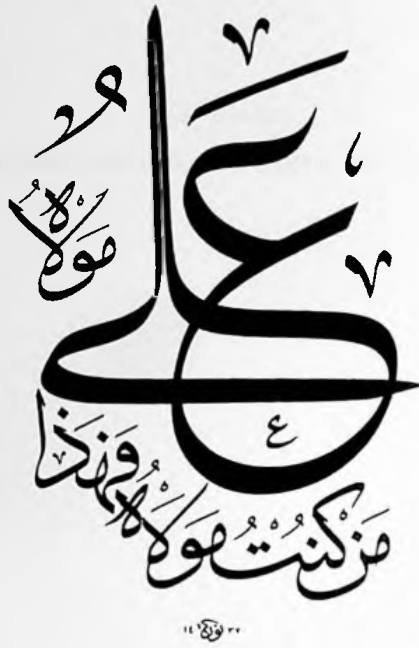 مَنْ كُنْتُ مَوْلَاهُ فَهَذَا
عَلي
مَوْلَاهُ